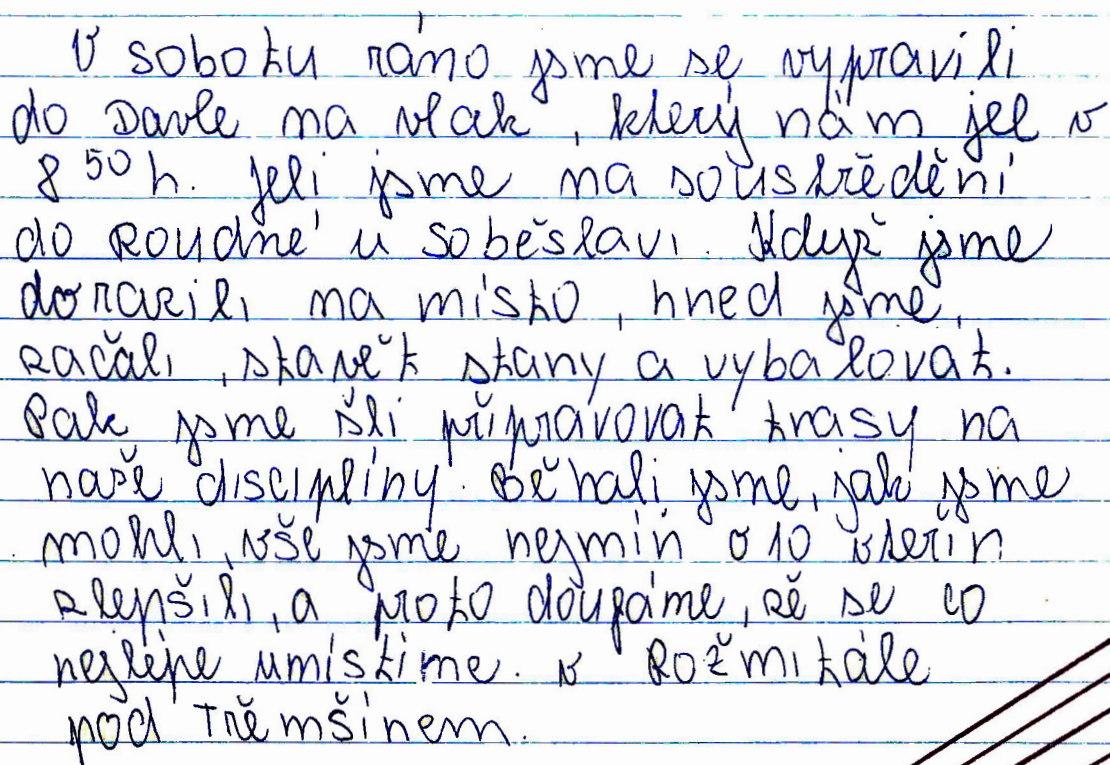 V sobotu ráno jsme se vypravili
do Davle na vlak, který nám jel v
8 50 h. jeli jsme na soustředění
do Roudné u soběslavi. Když jsme
dorazili na místo, hned jsme,
začali, stavět stany a vybalovat.
Pak jsme šli připravovat trasy na
naše disciplíny. Běhali jsme, jak jsme
mohli, vše jsme nejmín o 10 vteřin
zlepšili, a proto doufáme, že se co
nejlépe umístíme. v Rožmitále
pod Třemšínem.